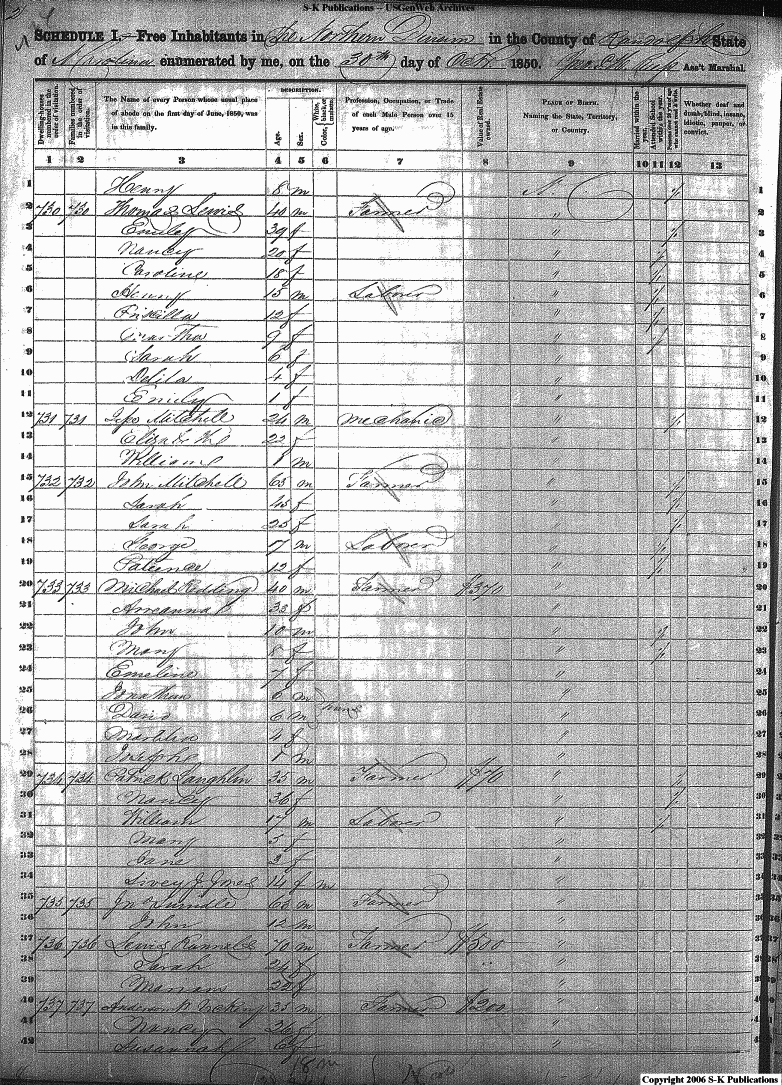 S-K Publications -- USGenWeb Archives
SCHEDULE I.—Free Inhabitants in The Northern Division in the County of Randolph State
of N Carolina enumerated by me, on the 30th day of Octr 1850. Ass't Marshal.
DESCRIPTION.
Dwelling-houses numbered in the order of visitation.
Families numbered in the order of visitation.
The Name of every Person whose usual place of abode on the first day of June, 1850, was in this family.
Age.
Sex.
Color, White, black, or mulatto.
Profession, Occupation, or Trade of each Male Person over 15 years of age.
Value of Real Estate owned.
PLACE OF BIRTH. Naming the State, Territory, or Country.
Married within the year.
Attended School within the year.
Persons over 20 y'rs of age who cannot read & write.
Whether deaf and dumb, blind, insane, idiotic, pauper, or convict.
1 2 3 4 5 6 7 8 9 10 11 12 13
1 Henry 8 m N. C / 1
2 730 730 Thomas Lewis 40 m Farmer " 2
3 Emily 39 f " / 3
4 Nancy 20 f " / 4
5 Caroline 18 f " / 5
6 Henry 15 m Laborer " / 6
7 12 f " / 7
8 9 f " / 8
9 Sarah 6 f " 9
10 Delila 4 f " 10
11 Emily 1 f " 11
12 731 731 Mitchell 24 m Mechanic " / 12
13 Elizabeth 22 f " 13
14 William 1 m " 14
15 732 732 John Mitchell 63 m Farmer " / 15
16 Sarah 45 f " / 16
17 Sarah 25 f " / 17
18 George 17 m Laborer " / 18
19 12 f " / 19
20 733 733 Michael Redding 40 m Farmer $370 " 20
21 33 f " 21
22 John 10 m " / 22
23 Mary 8 f " / 23
24 Emeline 7 f " 24
25 Jonathan 6 m " 25
26 David 6 m " 26
27 4 f " 27
28 Joseph 1 m " 28
29 734 734 Patrick Laughlin 35 m Farmer $70 " / 29
30 Nancy 36 f " / 30
31 William 17 m Laborer " / 31
32 Mary 5 f " 32
33 Jane 2 f " 33
34 14 f m " 34
35 735 735 Farmer " 35
36 John 12 m " 36
37 736 736 Lewis 70 m Farmer $300 " 37
38 Sarah 24 f " 38
39 f " 39
40 737 737 Anderson 35 m Farmer $200 " 40
41 Nancy 26 f " 41
42 Susannah " 42
18 m
Copyright 2006 S-K Publications